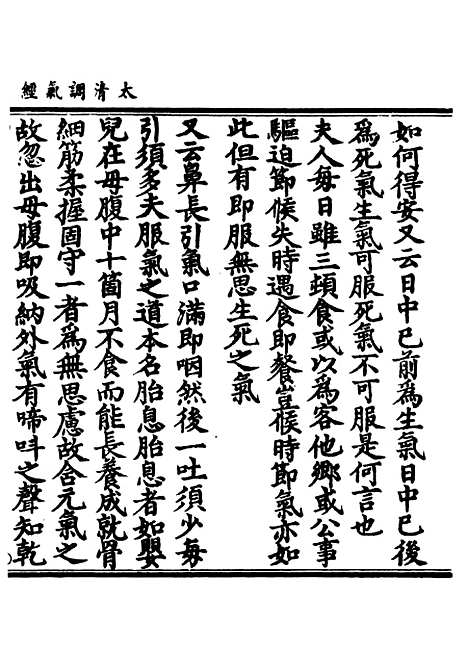 太清調氣經
如何得安又云日中已前爲生氣日中已後
爲死氣生氣可服死氣不可服是何言也
夫人每日雖三頓食或以爲客他鄉或公事
驅迫節候失時遇食即餐豈候時節氣亦如
此但有即服無思生死之氣
又云鼻長引氣口滿即咽然後一吐須少每
引須多夫服氣之道本名胎息胎息者如嬰
兒在母腹中十箇月不食而能長養成就骨
細筋柔握固守一者爲無思慮故含元氣之
故忽出母腹即吸納外氣有啼呌之聲知乾